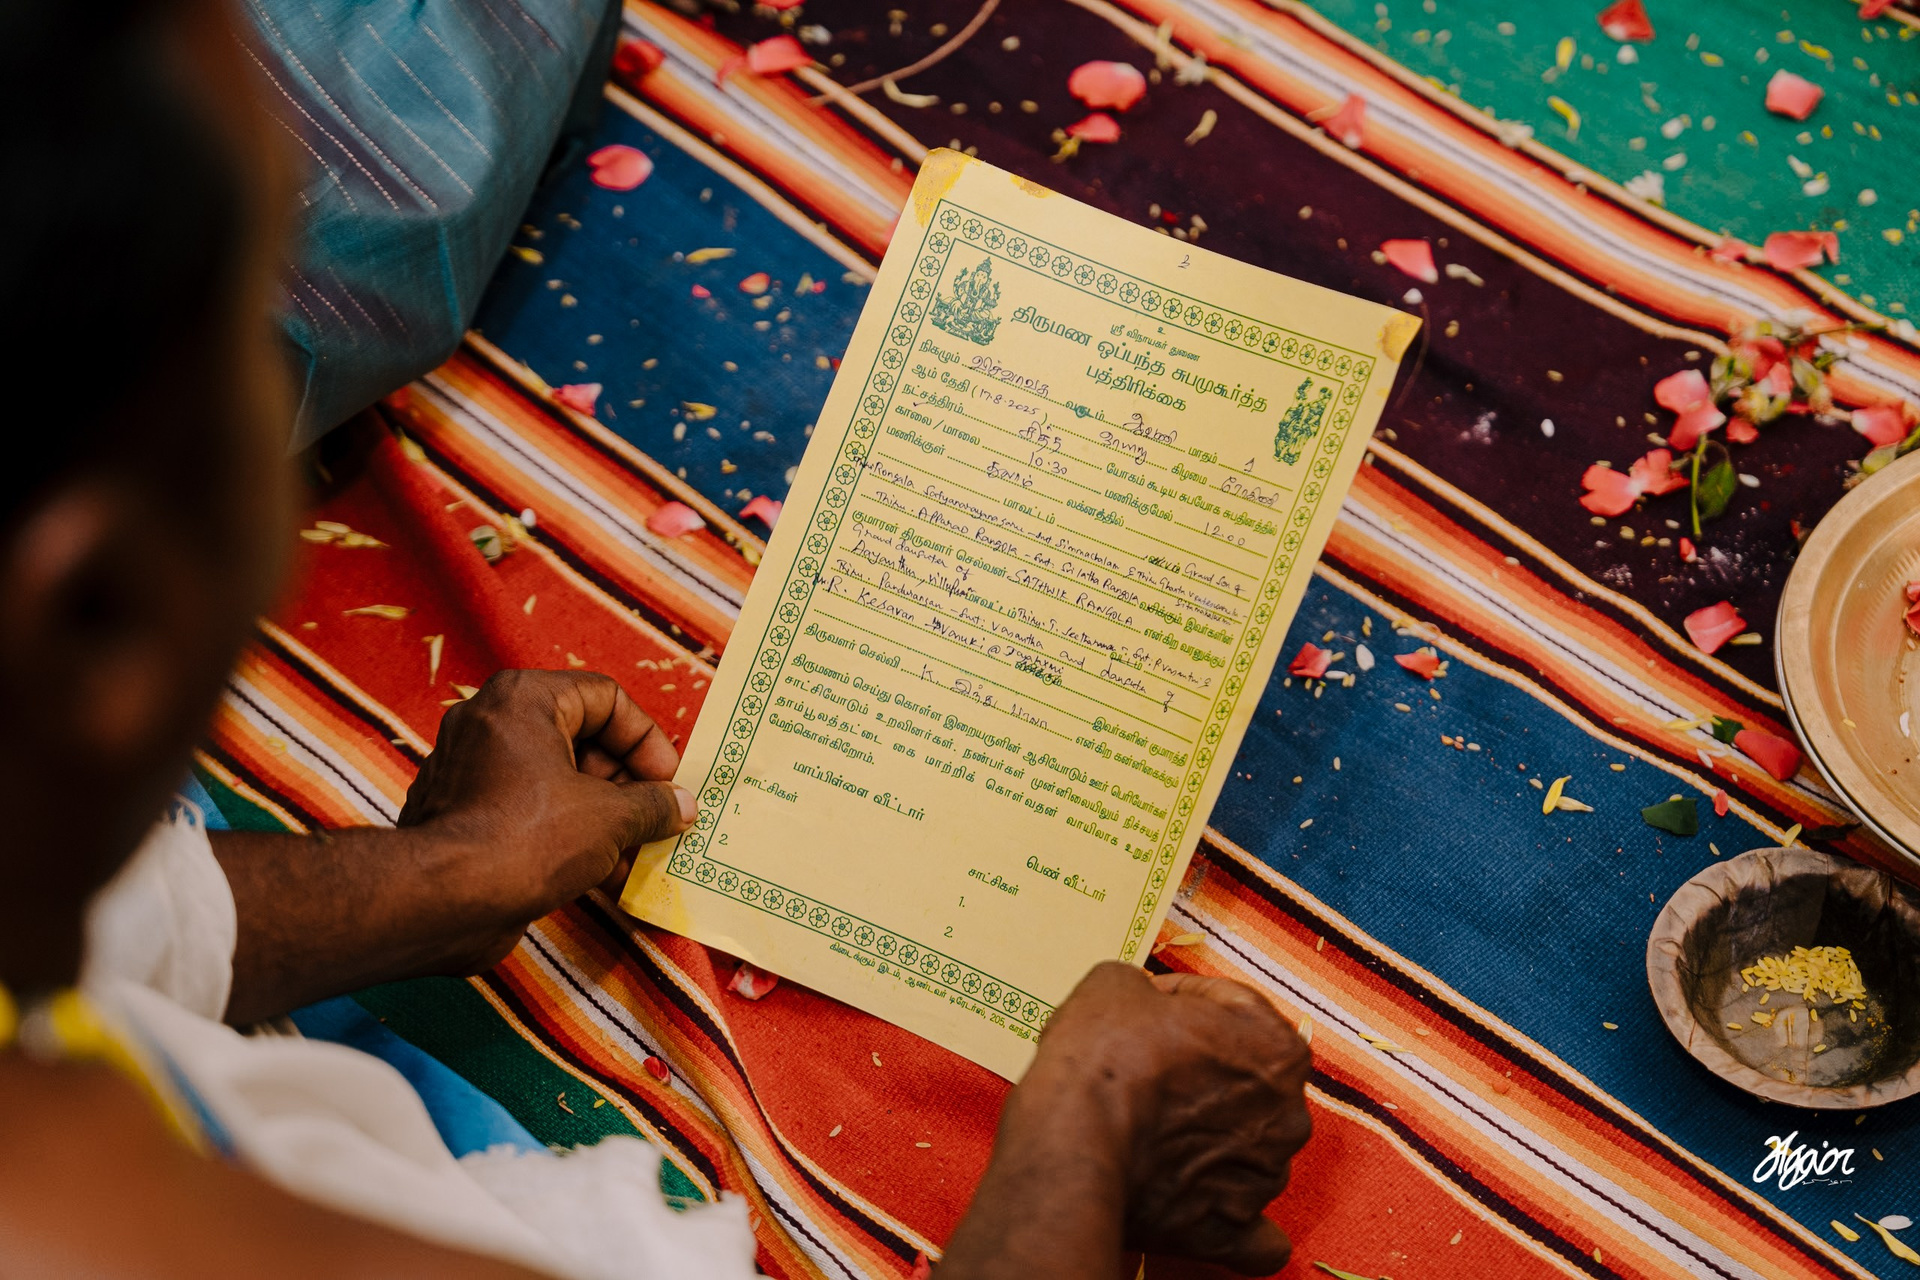 உ
உ
ஸ்ரீ விநாயகர் துணை
திருமண ஒப்பந்த சுபமுகூர்த்த
பத்திரிக்கை
நிகழும் விசுவாவசு வருடம் ஆவணி மாதம் 1
ஆம் தேதி (17-8-2025) ஞாயிறு கிழமை ரோகிணி
நட்சத்திரம் சித்த யோகம் கூடிய சுபயோக சுபதினத்தில்
காலை/மாலை 10.30 மணிக்குமேல் 12.00
மணிக்குள் துலாம் லக்னத்தில்
Rangala Satyanarayana Simmachalam Grand Son of
மாவட்டம் வட்டம்
Thiru. Apparao Rangola - Smt. Sri Latha Rangola வசிக்கும். இவர்களின்
குமாரன் திருவளர் செல்வன் SATHWIK RANGOLA என்கிற வரனுக்கும்
Grand daughter of
மாவட்டம் Thiru. வட்டம்
Thiru. Pandurangan - Smt. Vasantha and daughter of
R. Kesavan வசிக்கும்
இவர்களின் குமாரத்தி
திருவளர் செல்வி K. இந்து பாலா என்கிற கன்னிகைக்கும்
திருமணம் செய்து கொள்ள இறையருளின் ஆசியோடும் ஊர் பெரியோர்கள்
சாட்சியோடும் உறவினர்கள். நண்பர்கள் முன்னிலையிலும் நிச்சயத்
தாம்பூலத்தட்டை கை மாற்றிக் கொள்வதன் வாயிலாக உறுதி
மேற்கொள்கிறோம்.
மாப்பிள்ளை வீட்டார்
சாட்சிகள்
1.
2
பெண் வீட்டார்
சாட்சிகள்
1.
2
கிடைக்கும் இடம், ஆண்டவர் டிரேடர்ஸ், 205, காந்தி